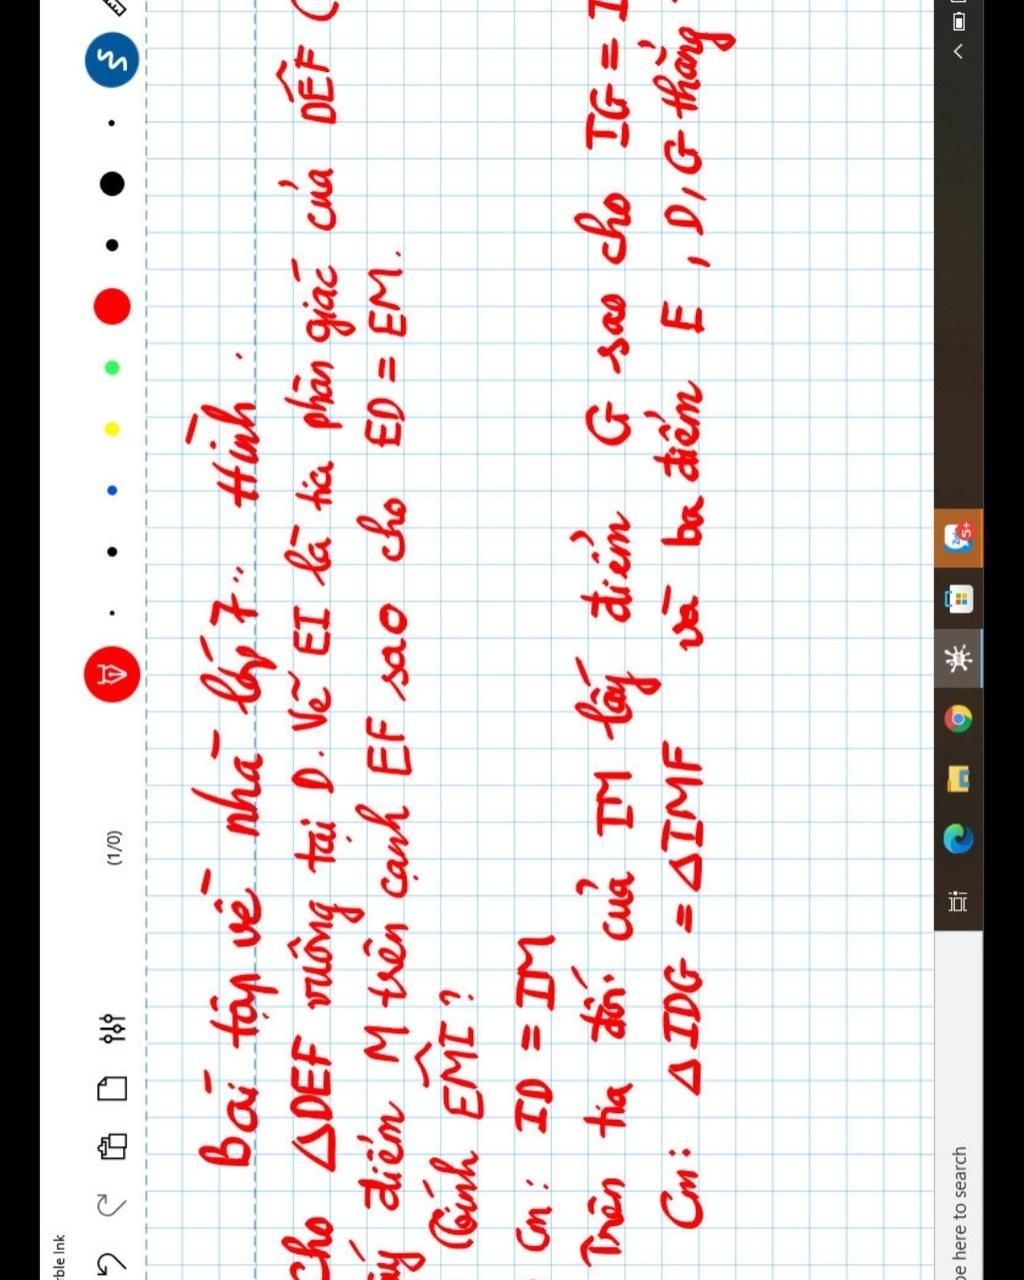 rble Ink
(1/0)
Bài tập về nhà lớp 7 .. Hình.
Cho ΔDEF vuông tại D. Vẽ EI là tia phân giác của DÊF (
ấy điểm M trên cạnh EF sao cho ED = EM.
Tính EM̂I?
Cm: ID = IM
Trên tia đối của IM lấy điểm G sao cho IG = I
Cm: ΔIDG = ΔIMF và ba điểm E, D, G thẳng
pe here to search
5+